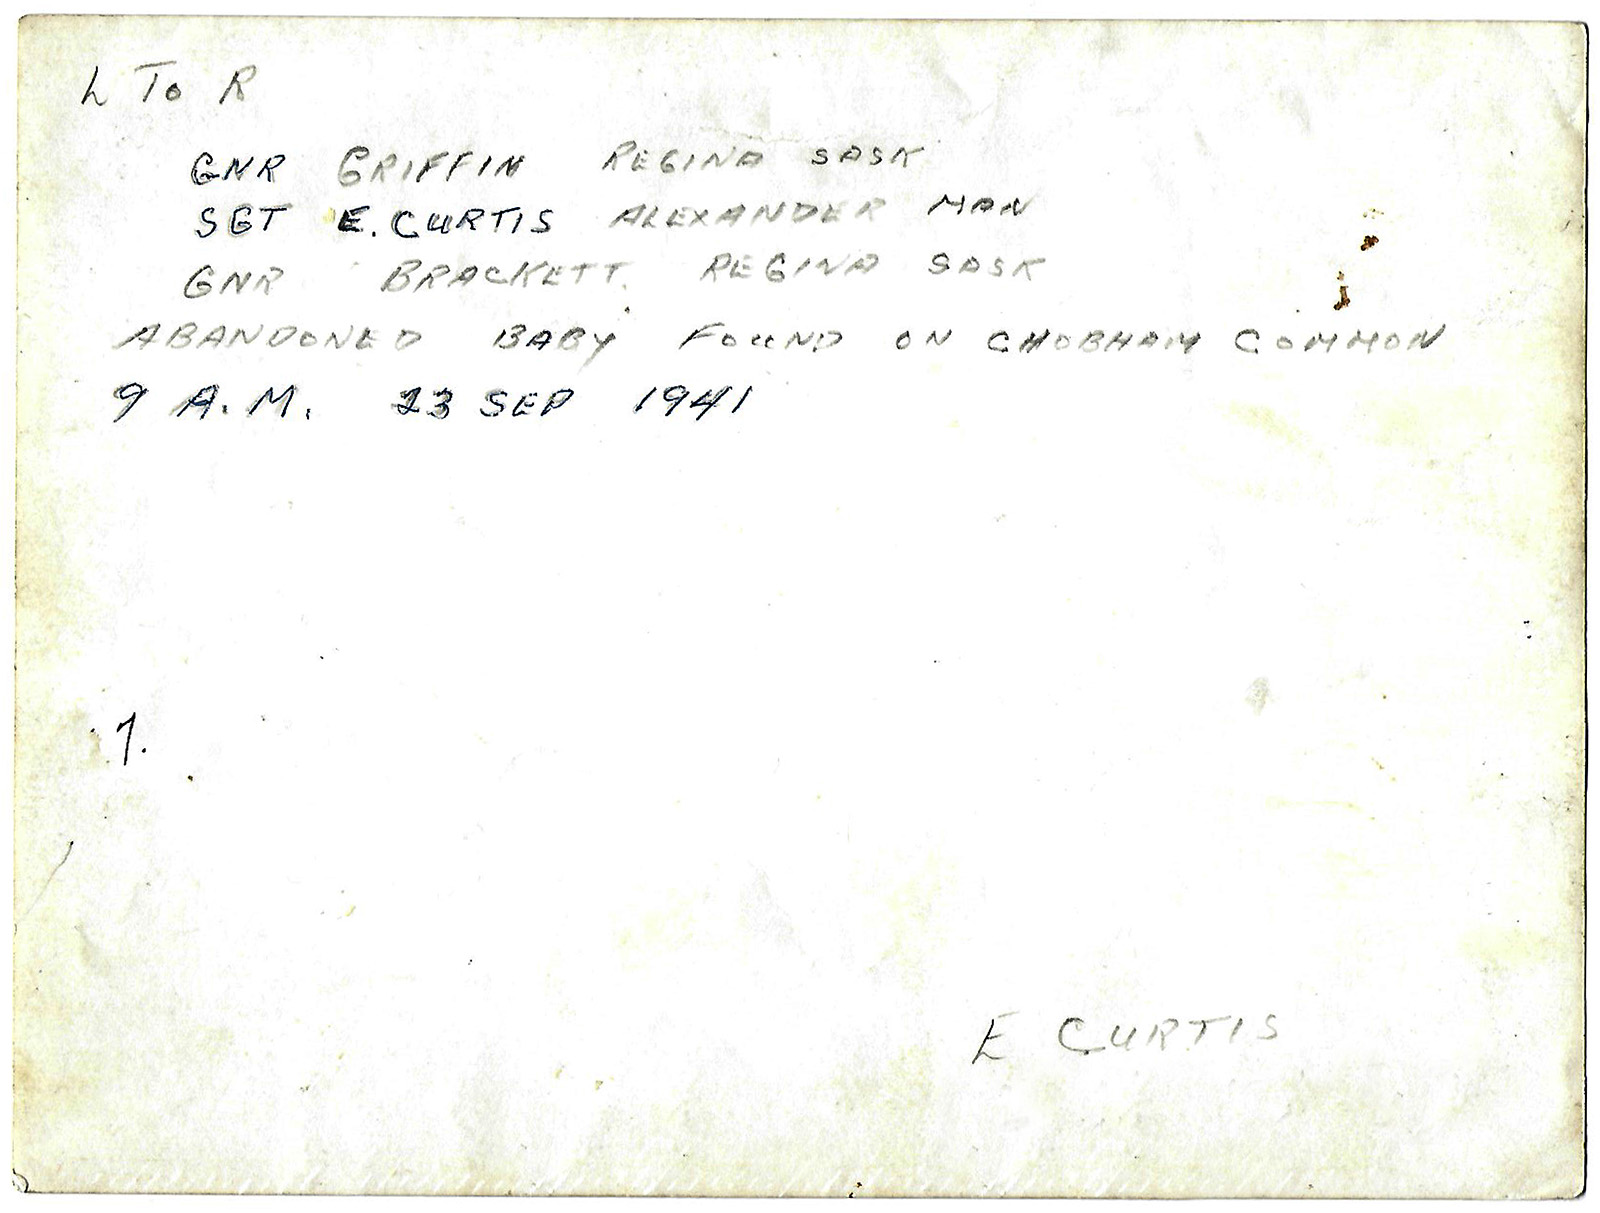 L To R
GNR GRIFFIN REGINA SASK
SGT E. CURTIS ALEXANDER MAN
GNR BRACKETT. REGINA SASK
ABANDONED BABY FOUND ON CHOBHAM COMMON
9 A.M. 23 SEP 1941
7.
E CURTIS